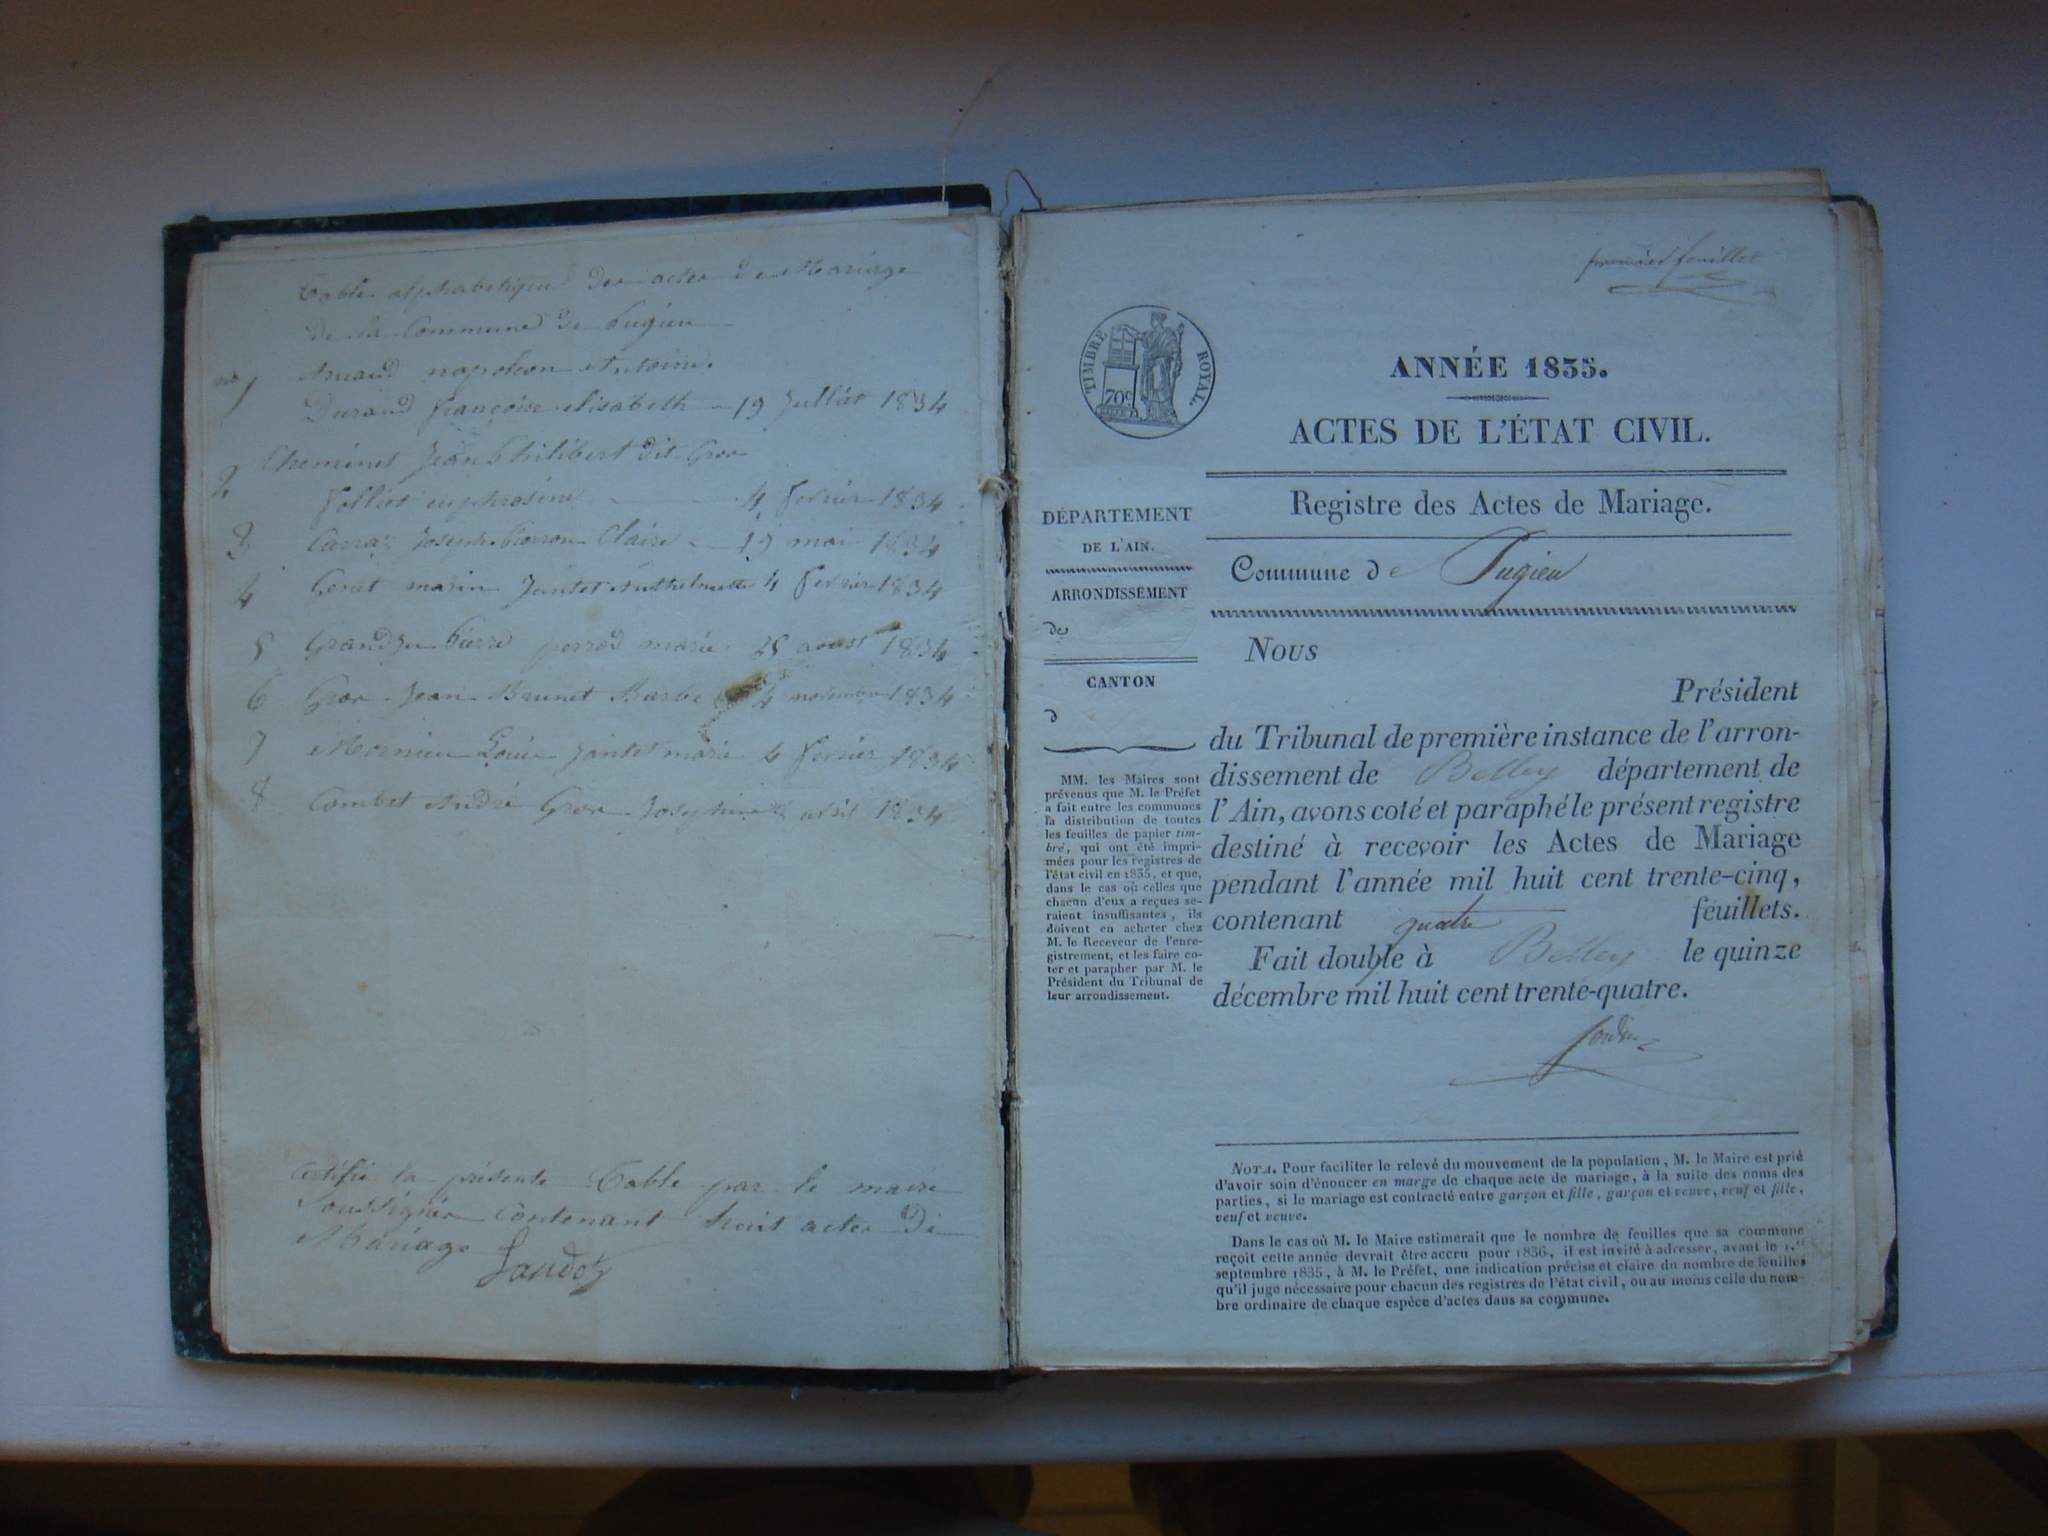 Table alphabetique des actes de Mariage
de la Commune de Pugieu
no 1 Arnaud napoleon Antoine.
Durand françoise elisabeth 19 Julliet 1834
2 Cheminet Jean Philibert dit Gros
folliet euphrosine 4 fevrier 1834
3 Carraz Joseph Pierron Claire 19 mai 1834
4 Gerat marin Jantet Anthelmette 4 fevrier 1834
5 Grandju Pierre perrod marie 25 aoust 1834
6 Gros Jean Brunet Barbe 4 novembre 1834
7 Mornieu Louis Jantet marie 4 fevrier 1834
8 Combet André Gros Josephine 8 avril 1834
Certifié la présente Table par le maire
Soussigné Contenant huit actes de
Mariage
premier feuillet
TIMBRE ROYAL.
70c
ANNÉE 1835.
ACTES DE L'ÉTAT CIVIL.
Registre des Actes de Mariage.
Commune de Pugieu
DÉPARTEMENT
DE L'AIN.
ARRONDISSEMENT
de
CANTON
d
MM. les Maires sont
prévenus que M. le Préfet
a fait entre les communes
la distribution de toutes
les feuilles de papier tim-
bré, qui ont été impri-
mées pour les registres de
l'état civil en 1835, et que,
dans le cas où celles que
chacun d'eux a reçues se-
raient insuffisantes, ils
doivent en acheter chez
M. le Receveur de l'enre-
gistrement, et les faire co-
ter et parapher par M. le
Président du Tribunal de
leur arrondissement.
Nous
Président
du Tribunal de première instance de l'arron-
dissement de Belley département de
l'Ain, avons coté et paraphé le présent registre
destiné à recevoir les Actes de Mariage
pendant l'année mil huit cent trente-cinq,
contenant quatre feuillets.
Fait double à Belley le quinze
décembre mil huit cent trente-quatre.
NOTA. Pour faciliter le relevé du mouvement de la population, M. le Maire est prié
d'avoir soin d'énoncer en marge de chaque acte de mariage, à la suite des noms des
parties, si le mariage est contracté entre garçon et fille, garçon et veuve, veuf et fille,
veuf et veuve.
Dans le cas où M. le Maire estimerait que le nombre de feuilles que sa commune
reçoit cette année devrait être accru pour 1836, il est invité à adresser, avant le 1.er
septembre 1835, à M. le Préfet, une indication précise et claire du nombre de feuilles
qu'il juge nécessaire pour chacun des registres de l'état civil, ou au moins celle du nom-
bre ordinaire de chaque espèce d'actes dans sa commune.